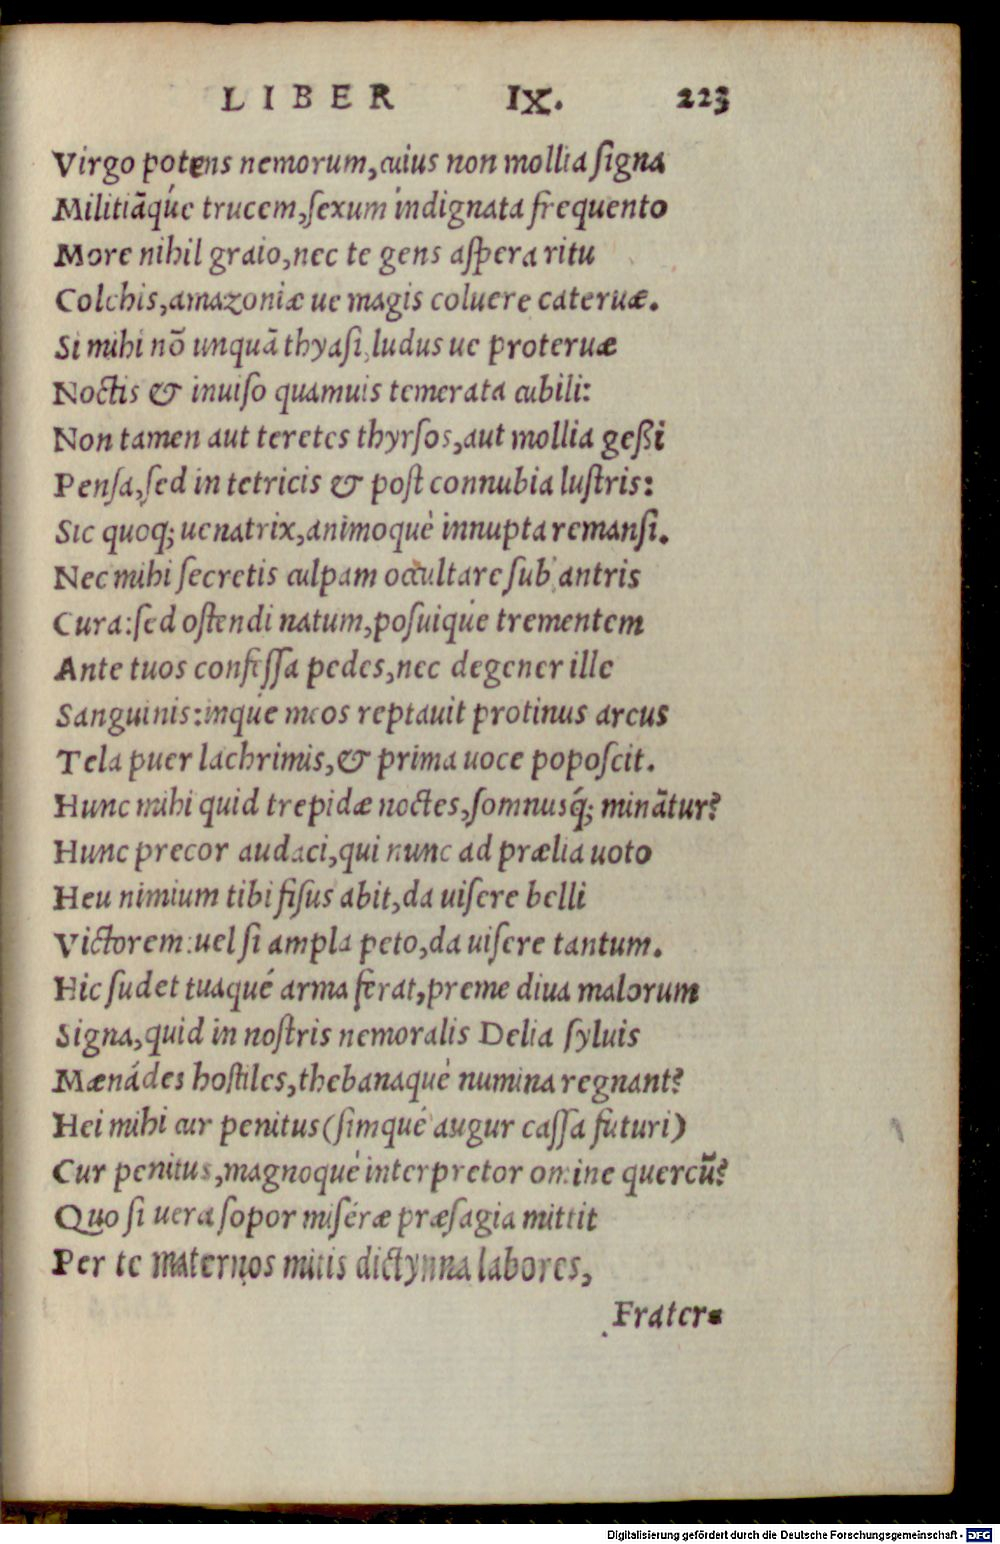 LIBER IX. 223
Virgo potens nemorum, cuius non mollia ſigna
Militiāq́ue trucem, ſexum indignata frequento
More nihil graio, nec te gens aſpera ritu
Colchis, amazoniæ ue magis coluere cateruæ.
Si mihi nō unquā thyaſi, ludus ue proteruæ
Noctis & inuiſo quamuis temerata cubili:
Non tamen aut teretes thyrſos, aut mollia geßi
Penſa, ſed in tetricis & poſt connubia luſtris:
Sic quoq; uenatrix, animoq́ue innupta remanſi.
Nec mihi ſecretis culpam occultare ſub antris
Cura: ſed oſtendi natum, poſuiq́ue trementem
Ante tuos confeſſa pedes, nec degener ille
Sanguinis: inq́ue meos reptauit protinus arcus
Tela puer lachrimis, & prima uoce popoſcit.
Hunc mihi quid trepidæ noctes, ſomnusq́; minātur?
Hunc precor audaci, qui nunc ad prælia uoto
Heu nimium tibi fiſus abit, da uiſere belli
Victorem: uel ſi ampla peto, da uiſere tantum.
Hic ſudet tuaq́ue arma ferat, preme diua malorum
Signa, quid in noſtris nemoralis Delia ſyluis
Mænádes hoſtiles, thebanaq́ue numina regnant?
Hei mihi cur penitus (ſimq́ue augur caſſa futuri)
Cur penitus, magnoq́ue interpretor omine quercū?
Quo ſi uera ſopor miſeræ præſagia mittit
Per te maternos mitis dictynna labores,
Frater-
Digitalisierung gefördert durch die Deutsche Forschungsgemeinschaft - DFG